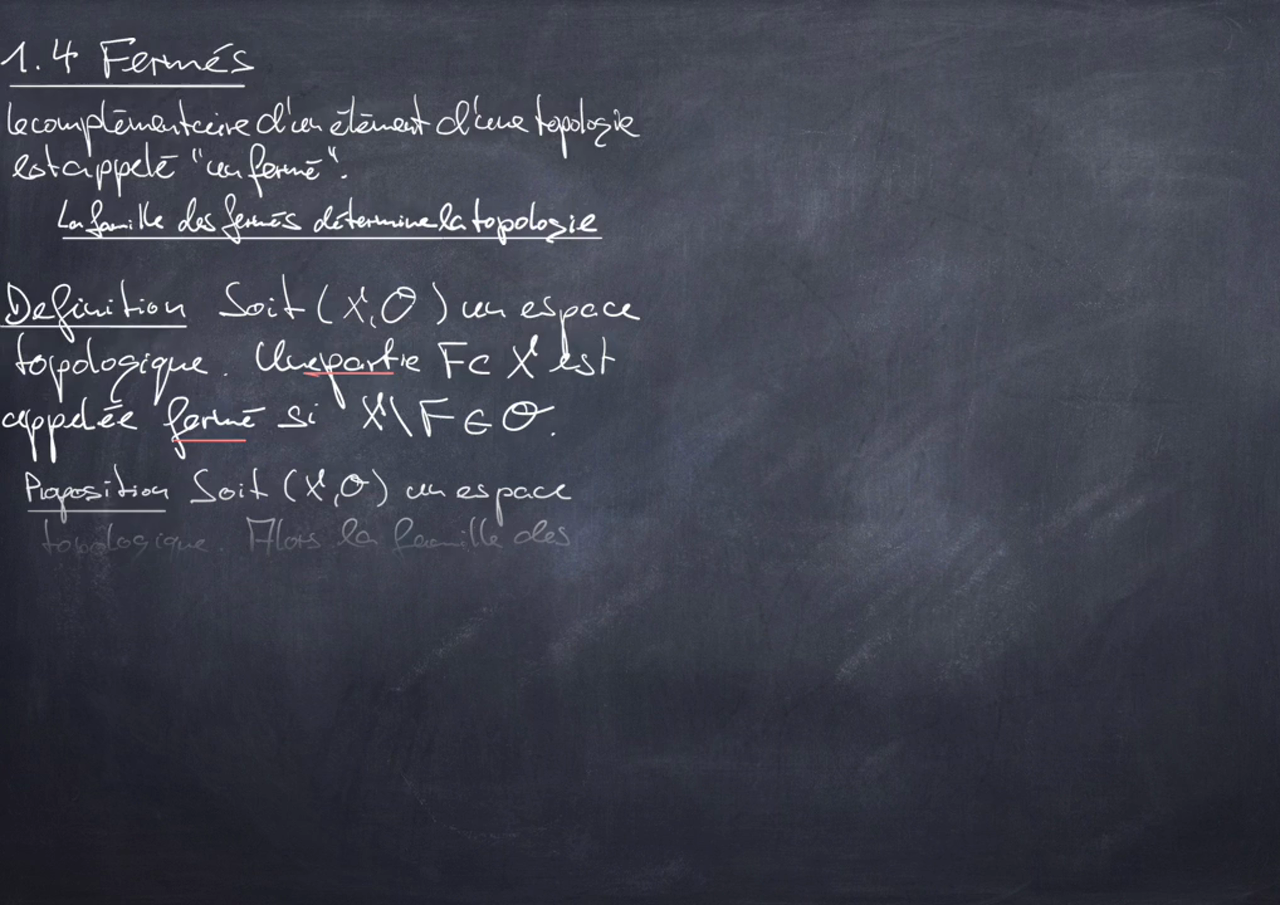 1.4 Fermés
Le complémentaire d'un élément d'une topologie
est appelé "un fermé".
La famille des fermés détermine la topologie
Definition Soit (X,O) un espace
topologique. Une partie F⊂X est
appelée fermé si X\F∈O.
Proposition Soit (X,O) un espace
topologique. Alors la famille des